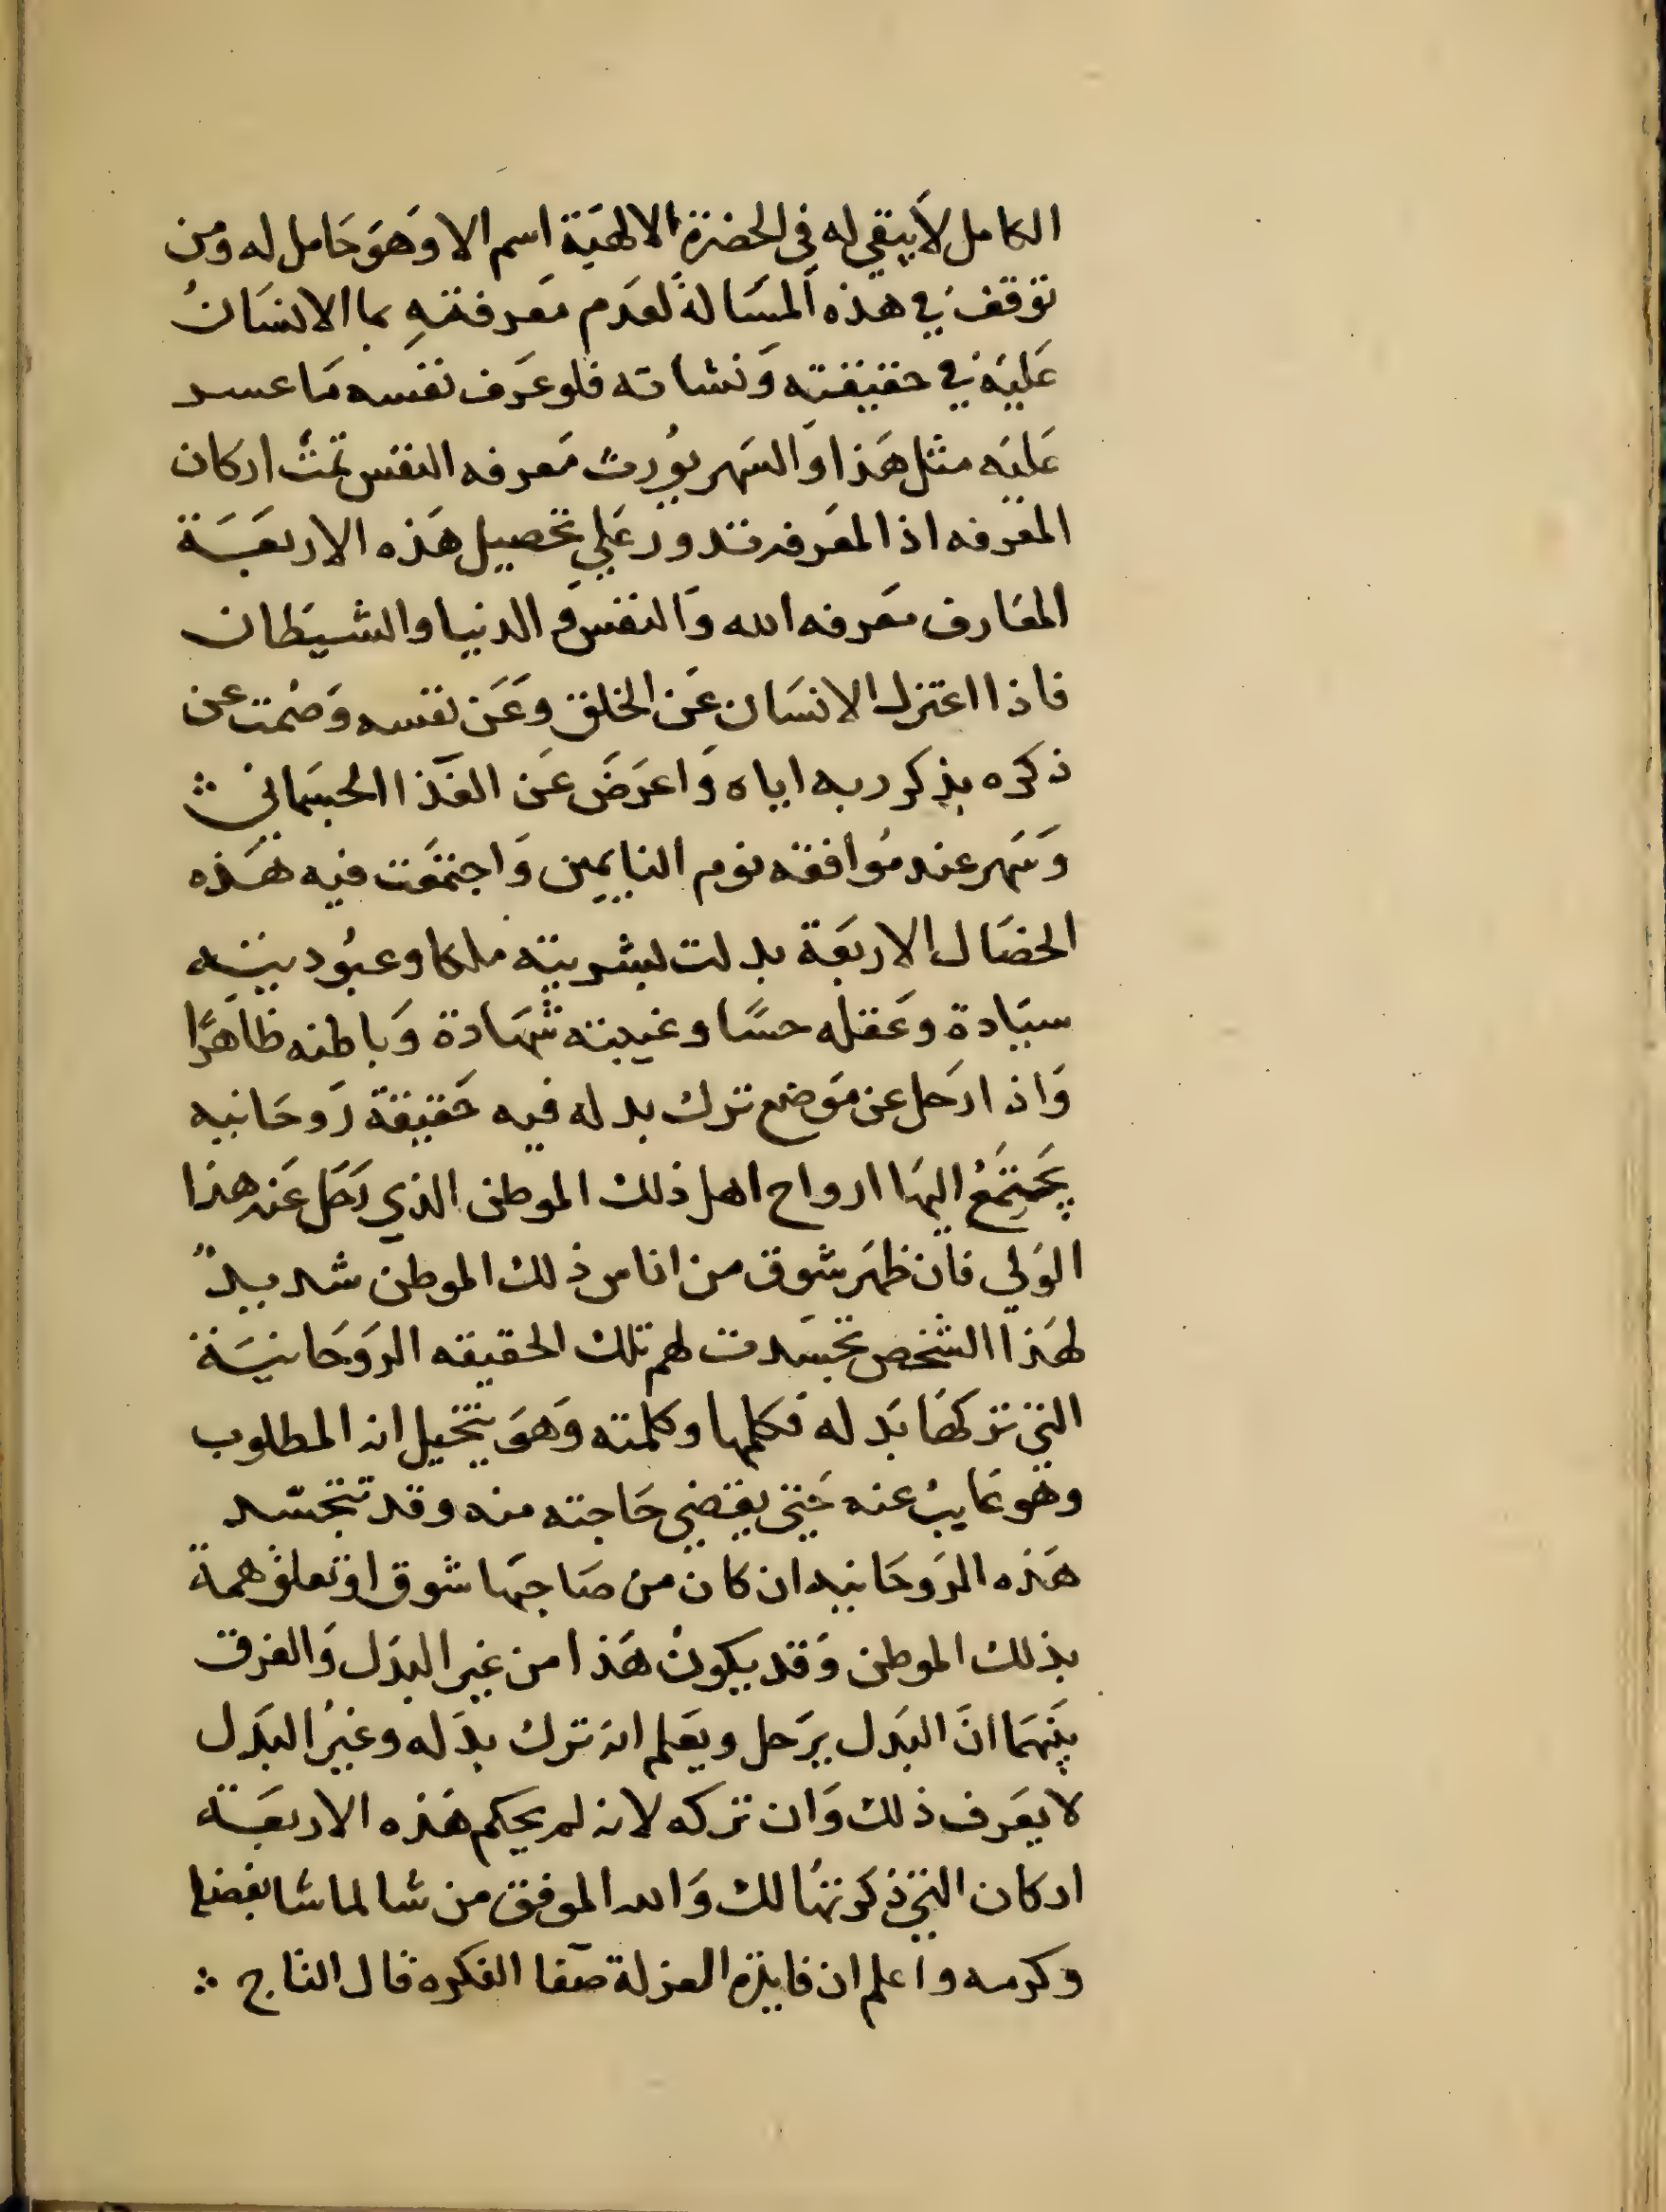 الكامل لاَيبقي له فِي الحضرَة الالهيَة اسم الا وَهوَ حَامل له وَمن
توقف في هذه المسَالة لعَدم مَعرفتهِ بما الانسَانُ
عَليَه في حقيقته وَنشاته فلوعَرف نفسه مَا عسر
عَليَه مثل هَذا وَالسَهر يُورث مَعرفه النفس تمتْ اركان
المعَرفه اذ المعَرفه تدور عَلي تحصيل هَذه الاربعَة
المعَارف مَعرفه الله وَالنفس وَالدنيا والشيَطان
فاذا اعتزل الانسَان عَن الخلق وَعَن نفسه وَصْمت عن
ذكرَه بذكر ربه اياه وَاعرَضَ عَن الغَذا الجسَماني ؞
وَسَهر عند مُوافقه نوم النايمين وَاجتمَعت فيه هَذه
الخصَال الاربعَة بدلت بشريته ملكا وعبُوديته
سيَادة وعَقله حسًا وغيبته شَهَادة وَباطنه ظاهرًا
وَاذا رَحل عن مَوضع ترك بدله فيه حَقيقة رَوحَانيه
يَجتِمَعُ اليهَا ارواح اهل ذلك الموطن الذي رَحَل عَنه هذا
الوَلي فان ظهَر شوق من اناس ذلك الموطن شديدٌ
لهَذا الشخص تجسَدت لهم تلك الحقيقه الرَوحَانيَة
التي تركهَا بَدله فكلمها وكلمته وَهوَ يتخيل انه المطلوب
وهو غايبُ عنه حَتي يقضي حَاجته منه وقد تتجسّد
هَذه الرَوحَانيه ان كان من صَاحبهَا شوق اوَتعلق همة
بذلك الموطن وَقد يكونُ هَذا من غير البدَل وَالفرق
بيَنهمَا انَ البَدل يرَحل ويعَلم انه ترك بدَله وغيرُ البَدل
لا يعَرف ذلك وَان تركه لانه لم يحكم هَذه الاربعَة
اركان التي ذكرَتهُا لك وَالله الموفق من شا لما شا بفضله
وكرمه واعلم ان فايدة العزلة صَفا الفكره قال التاج ؞